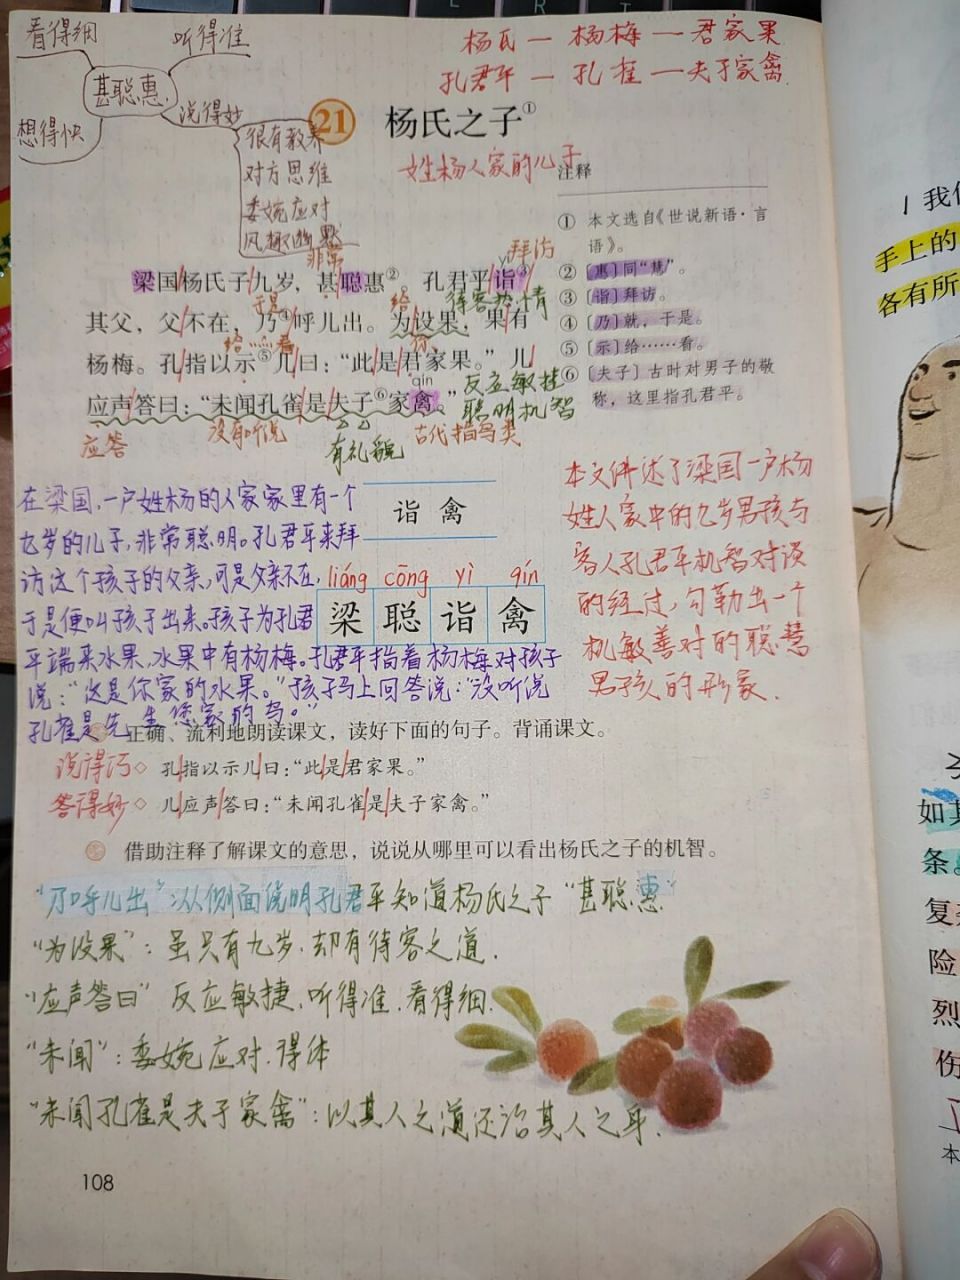 看得细 听得准
甚聪惠
想得快 说得妙
很有教养
对方思维
委婉应对
风趣幽默
杨氏—杨梅—君家果
孔君平—孔雀—夫子家禽
21 杨氏之子①
姓杨人家的儿子
注释
① 本文选自《世说新语·言
语》。
②〔惠〕同“慧”。
③〔诣〕拜访。
④〔乃〕就，于是。
⑤〔示〕给……看。
⑥〔夫子〕古时对男子的敬
称，这里指孔君平。
非常 拜访
yì
梁国杨氏子九岁，甚聪惠②。孔君平诣③
于是 给 待客热情
其父，父不在，乃④呼儿出。为设果，果有
给……看 你
杨梅。孔指以示⑤儿曰：“此是君家果。”儿
qín
应声答曰：“未闻孔雀是夫子⑥家禽。”
反应敏捷
聪明机智
应答 没有听说 有礼貌 古代指鸟类
诣 禽
liáng cōng yì qín
梁 聪 诣 禽
在梁国,一户姓杨的人家家里有一个
九岁的儿子,非常聪明。孔君平来拜
访这个孩子的父亲,可是父亲不在,
于是便叫孩子出来。孩子为孔君
平端来水果,水果中有杨梅。孔君平指着杨梅对孩子
说：“这是你家的水果。”孩子马上回答说：“没听说
孔雀是先生您家的鸟。”
本文讲述了梁国一户杨
姓人家中的九岁男孩与
客人孔君平机智对谈
的经过,勾勒出一个
机敏善对的聪慧
男孩的形象.
正确、流利地朗读课文，读好下面的句子。背诵课文。
说得巧◇ 孔指以示儿曰：“此是君家果。”
答得妙◇ 儿应声答曰：“未闻孔雀是夫子家禽。”
借助注释了解课文的意思，说说从哪里可以看出杨氏之子的机智。
“乃呼儿出”：从侧面说明孔君平知道杨氏之子“甚聪惠”
“为设果”：虽只有九岁,却有待客之道.
“应声答曰” 反应敏捷,听得准.看得细.
“未闻”：委婉应对.得体
“未闻孔雀是夫子家禽”：以其人之道还治其人之身.
108
我
手上的
各有所
如其
条。
复
险
烈
伤
本